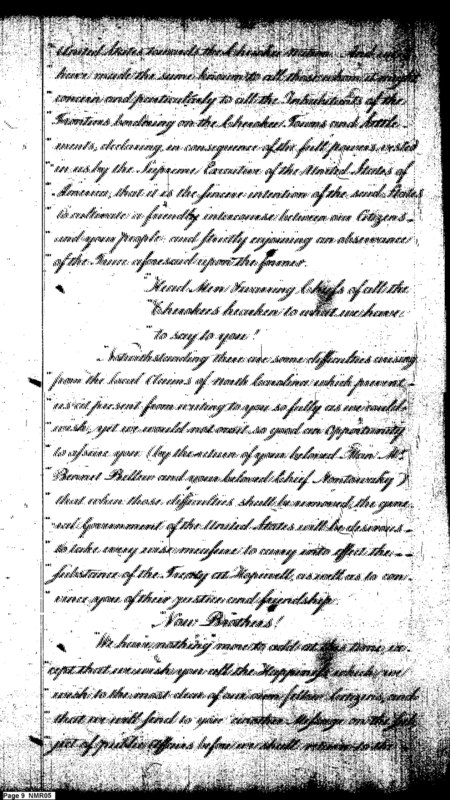 "United States towards the Cherokee Nation. And we
"have made the same known to all those whom it might
"concern and particularly to all the Inhabitants of the
"Frontiers bordering on the Cherokee Towns and Settle-
"ments, declaring, in consequence of the full powers vested
"in us by the Supreme Executive of the United States of
"America, that it is the sincere intention of the said States
"to cultivate a friendly intercourse between our Citizens
"and your people and strictly enjoining an observance
"of the Truce aforesaid upon the former.
"Head Men & warring Chiefs of all the
"Cherokees hearken to what we have
"to say to you!
"Notwithstanding there are some difficulties arising
"from the local Claims of North Carolina which prevent
"us at present from writing to you so fully as we could
"wish, yet we would not omit so good an Opportunity
"to assure you (by the return of your beloved Man Mr.
"Bennet Bellew and your beloved Chief Nontowaky)
"that when those difficulties shall be removed, the gene-
"ral Government of the United States will be desirous
"to take every wise measure to carry into effect the
"substance of the Treaty at Hopewell, as well as to con-
"vince you of their justice and friendship.
"Now Brothers!
"We have nothing more to add at this time, ex-
"cept that we wish you all the Happiness which we
"wish to the most dear of our own fellow Citizens, and
"that we will send to you another Message on the sub-
"ject of public Affairs before we shall return to the
Page 9 NMR05